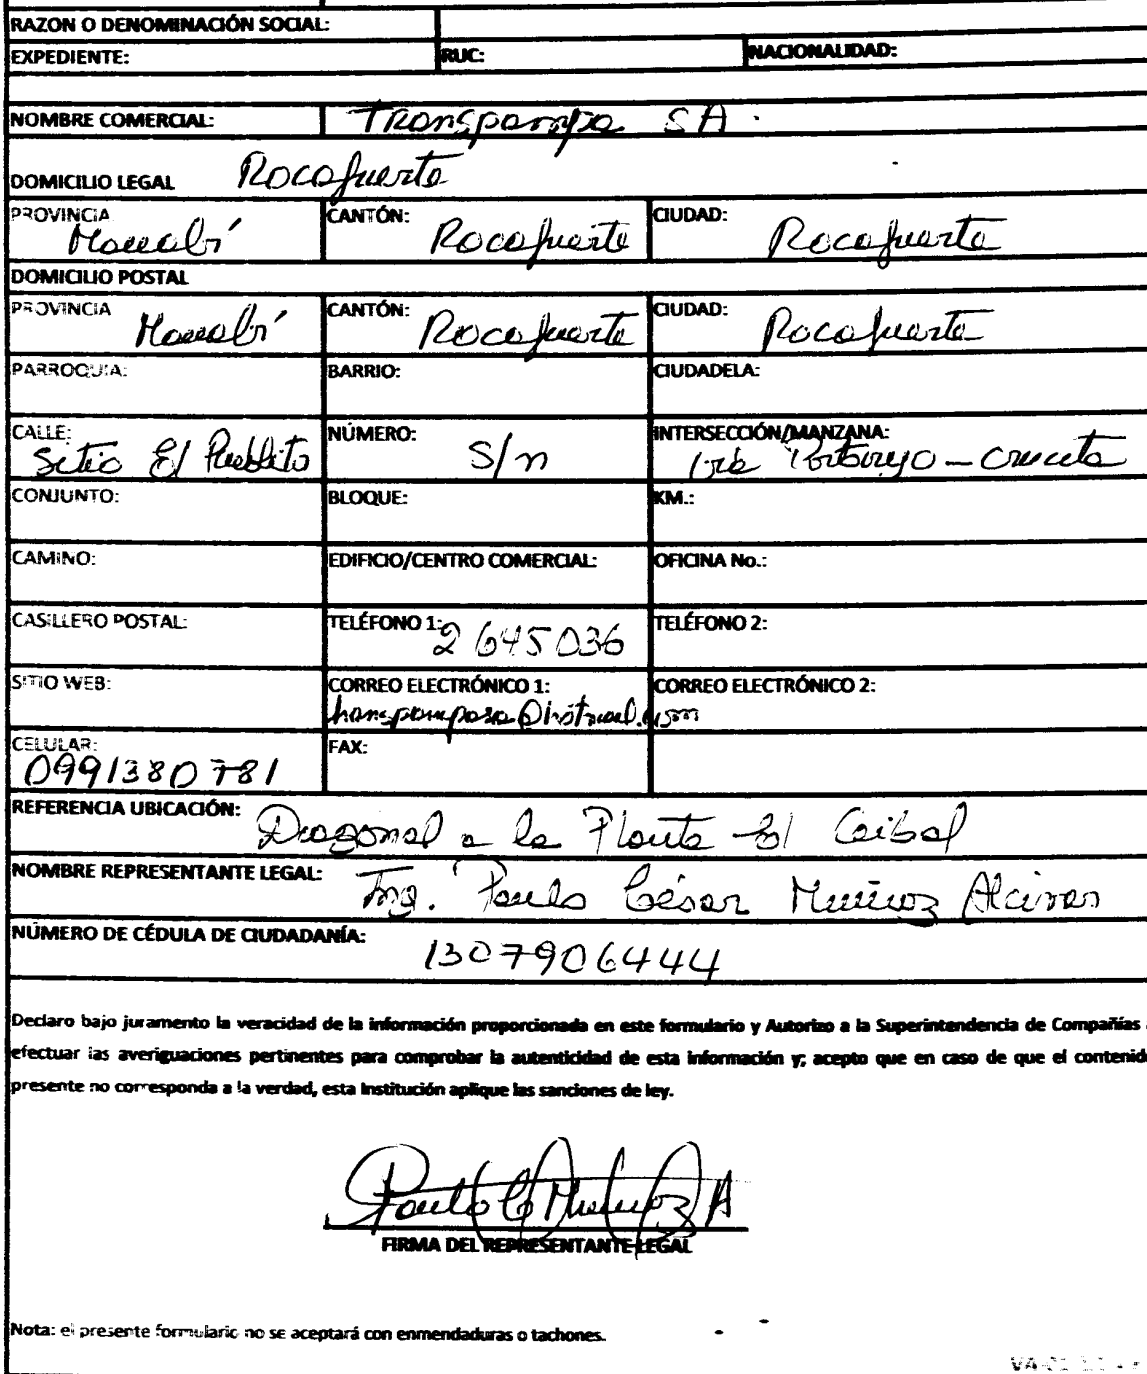 RAZON O DENOMINACIÓN SOCIAL:
EXPEDIENTE: RUC: NACIONALIDAD:
NOMBRE COMERCIAL: Transpampa SA.
DOMICILIO LEGAL Rocafuerte
PROVINCIA Manabí CANTÓN: Rocafuerte CIUDAD: Rocafuerte
DOMICILIO POSTAL
PROVINCIA Manabí CANTÓN: Rocafuerte CIUDAD: Rocafuerte
PARROQUIA: BARRIO: CIUDADELA:
CALLE: Sitio El Pueblito NÚMERO: S/n INTERSECCIÓN/MANZANA: Portoviejo - Crucita
CONJUNTO: BLOQUE: KM.:
CAMINO: EDIFICIO/CENTRO COMERCIAL: OFICINA No.:
CASILLERO POSTAL: TELÉFONO 1: 2645036 TELÉFONO 2:
SITIO WEB: CORREO ELECTRÓNICO 1: transpampasa@hotmail.com CORREO ELECTRÓNICO 2:
CELULAR: 0991380781 FAX:
REFERENCIA UBICACIÓN: Diagonal a la Planta El Ceibal
NOMBRE REPRESENTANTE LEGAL: Ing. Paulo César Muñoz Alcivar
NÚMERO DE CÉDULA DE CIUDADANÍA: 1307906444
Declaro bajo juramento la veracidad de la información proporcionada en este formulario y Autorizo a la Superintendencia de Compañías
efectuar las averiguaciones pertinentes para comprobar la autenticidad de esta información y; acepto que en caso de que el contenid
presente no corresponda a la verdad, esta Institución aplique las sanciones de ley.
Paulo C Muñoz A
FIRMA DEL REPRESENTANTE LEGAL
Nota: el presente formulario no se aceptará con enmendaduras o tachones.